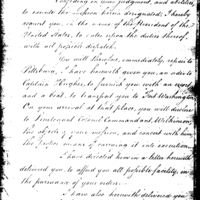 Confiding in your judgment, and abilities,
to execute the business herein designated; I hereby
request you, in the name of the President of the
United States, to enter upon the duties thereof,
with all possible dispatch.
You will therefore, immediately, repair to
Pittsburg, I have herewith given you, an order to
Captain Hughes, to furnish you with an escort
and a boat, to transport you to Fort Washington.
On your arrival at that place, you will disclose
to Lieutenant Colonel Commandant, Wilkinson,
the objects of your mission, and concert with him
the proper means of carrying it into execution.
I have directed him in a letter herewith
delivered you to afford you all possible facility, in
the pursuance of your orders.
I have also herewith delivered you